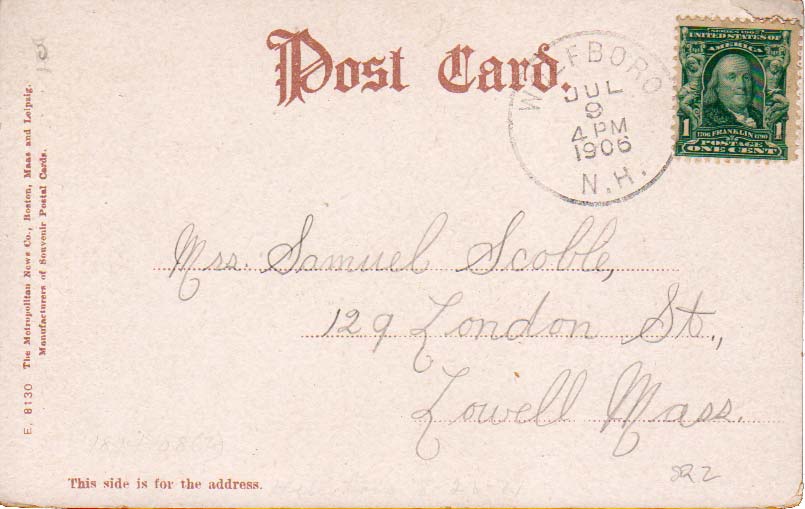 Post Card.
WOLFEBORO
JUL
9
4 PM
1906
N.H.
SERIES 1902
UNITED STATES OF
AMERICA
1706 FRANKLIN 1790
1 POSTAGE 1
ONE CENT
Mrs. Samuel Scoble,
129 London St.,
Lowell Mass.
822
This side is for the address.
E. 8130 The Metropolitan News Co., Boston, Mass and Leipzig.
Manufacturers of Souvenir Postal Cards.